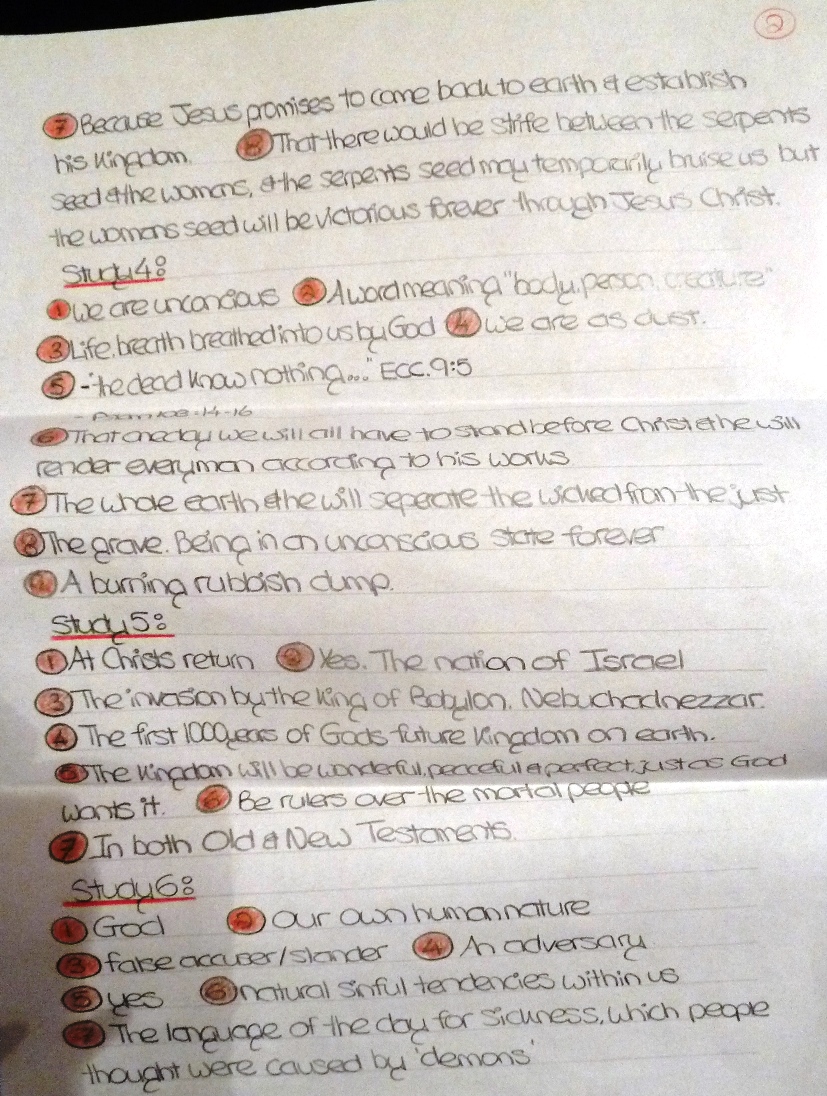 2
7 Because Jesus promises to come back to earth & establish
his Kingdom. 8 That there would be strife between the serpents
seed & the womans, & the serpents seed may temporarily bruise us but
the womans seed will be victorious forever through Jesus Christ.
Study 4:
1 We are unconcious 2 A word meaning "body, person, creature"
3 Life, breath breathed into us by God 4 We are as dust.
5 - "the dead know nothing..." Ecc. 9:5
14-16
6 That one day we will all have to stand before Christ & he will
render every man according to his works
7 The whole earth & he will seperate the wicked from the just
8 The grave. Being in an unconscious state forever
9 A burning rubbish dump.
Study 5:
1 At Christs return 2 Yes. The nation of Israel
3 The invasion by the King of Babylon. Nebuchadnezzar.
4 The first 1000 years of Gods future Kingdom on earth.
5 The Kingdom will be wonderful, peaceful & perfect, just as God
wants it. 6 Be rulers over the mortal people
7 In both Old & New Testaments.
Study 6:
1 God 2 Our own human nature
3 false accuser/slander 4 An adversary
5 yes 6 natural sinful tendencies within us
7 The language of the day for sickness, which people
thought were caused by 'demons'